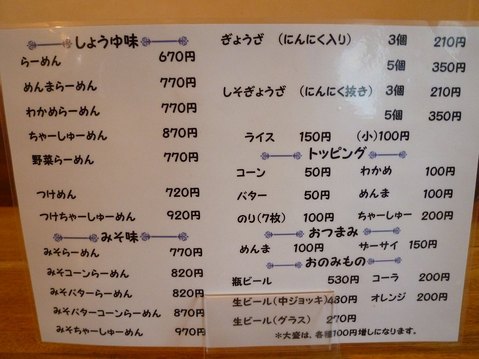 しょうゆ味
らーめん 670円
めんまらーめん 770円
わかめらーめん 770円
ちゃーしゅーめん 870円
野菜らーめん 770円
つけめん 720円
つけちゃーしゅーめん 920円
みそ味
みそらーめん 770円
みそコーンらーめん 820円
みそバターらーめん 820円
みそバターコーンらーめん 870円
みそちゃーしゅーめん 970円
ぎょうざ (にんにく入り) 3個 210円
5個 350円
しそぎょうざ (にんにく抜き) 3個 210円
5個 350円
ライス 150円 (小)100円
トッピング
コーン 50円 わかめ 100円
バター 50円 めんま 100円
のり(7枚) 100円 ちゃーしゅー 200円
おつまみ
めんま 100円 ザーサイ 150円
おのみもの
瓶ビール 530円 コーラ 200円
生ビール(中ジョッキ)480円 オレンジ 200円
生ビール(グラス) 270円
*大盛は、各種100円増しになります。